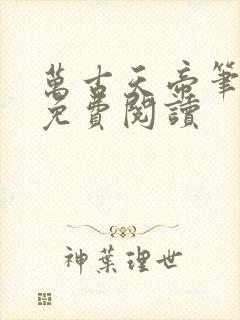 萬古天帝筆
免費閱讀
神葉理世